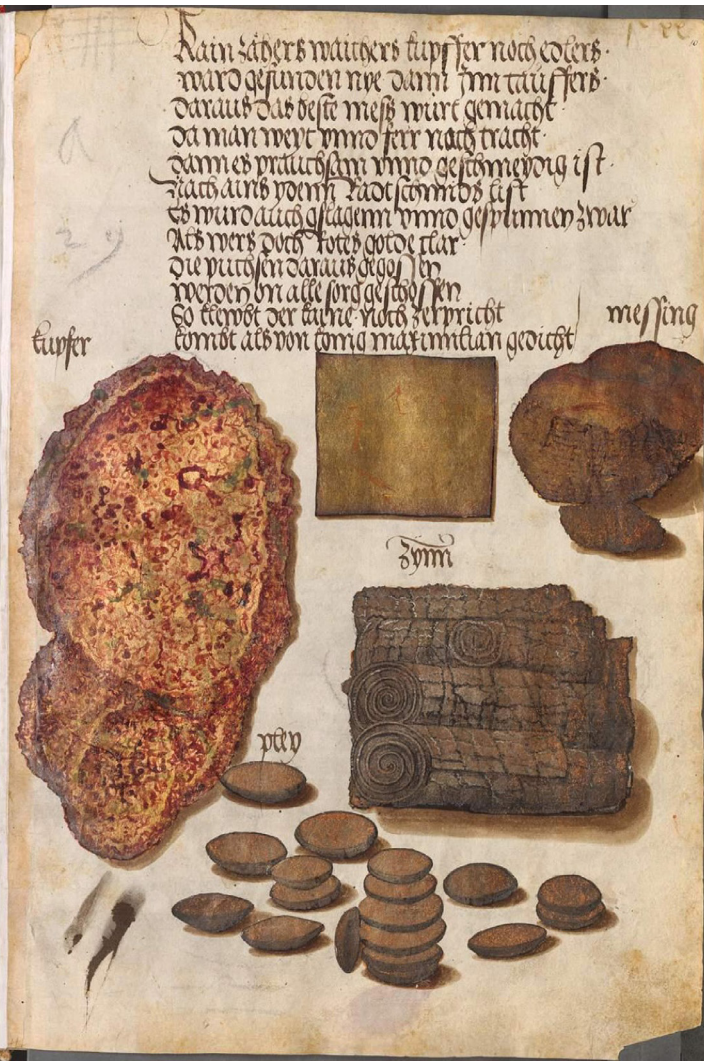 Kain zähers waichers kupffer noch edlers
ward gefunden nye dann zum tauffers
daraus das beste mess wurt gemacht
da man weyt vnnd ferr nach tracht
dann es prauchsam vnnd geschmeydig ist
Nach ains yden Radtschmids list
Es wurd auch gslagenn vnnd gespunnen zwar
Als wers doch Rotes golde clar
die puchsen daraus gegossen
werden on alle sorg geschossen
So klewbt der kaine noch zerpricht
kombt als von konig maximilian gedicht
messing
kupfer
zynn
pley